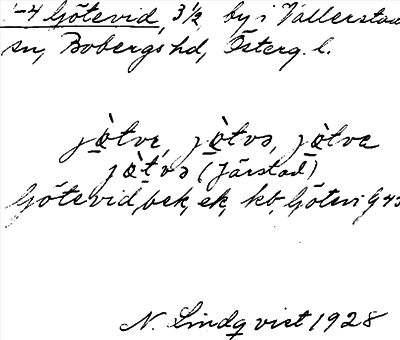 1-4 Götevid, 3 1/2, by i Vallerstad
sn, Bobergs hd, Österg. l.
jòtve, jòtvə, jòtve
jòtvə (Järstad)
Götevid, bek, ek, kb, Götevi G 45
N. Lindqvist 1928